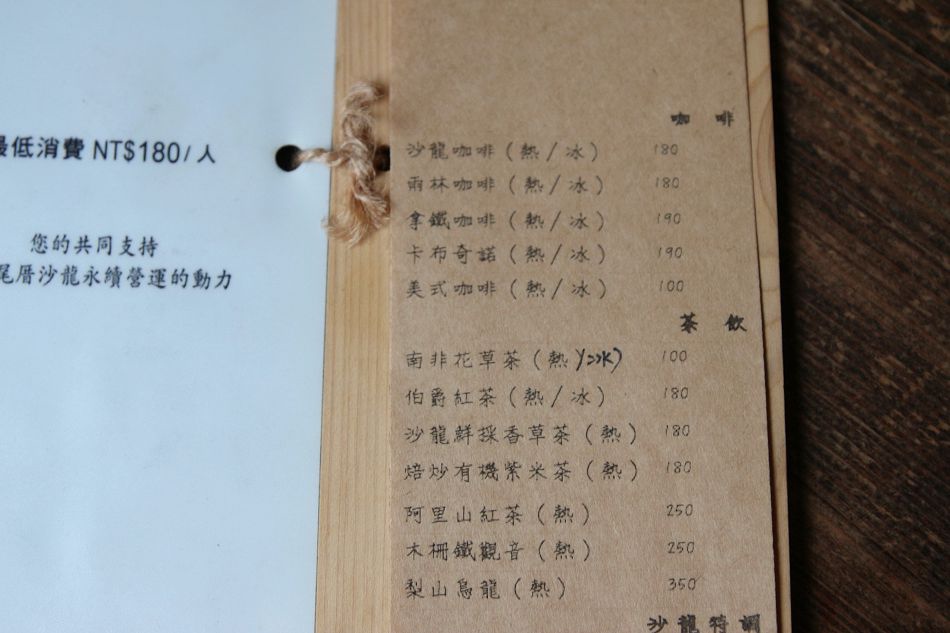 最低消費 NT$180/人
您的共同支持
尾厝沙龍永續營運的動力
咖 啡
沙龍咖啡(熱/冰) 180
雨林咖啡(熱/冰) 180
拿鐵咖啡(熱/冰) 190
卡布奇諾(熱/冰) 190
美式咖啡(熱/冰) 100
茶 飲
南非花草茶(熱/冰) 100
伯爵紅茶(熱/冰) 180
沙龍鮮採香草茶(熱) 180
焙炒有機紫米茶(熱) 180
阿里山紅茶(熱) 250
木柵鐵觀音(熱) 250
梨山烏龍(熱) 350
沙龍特調